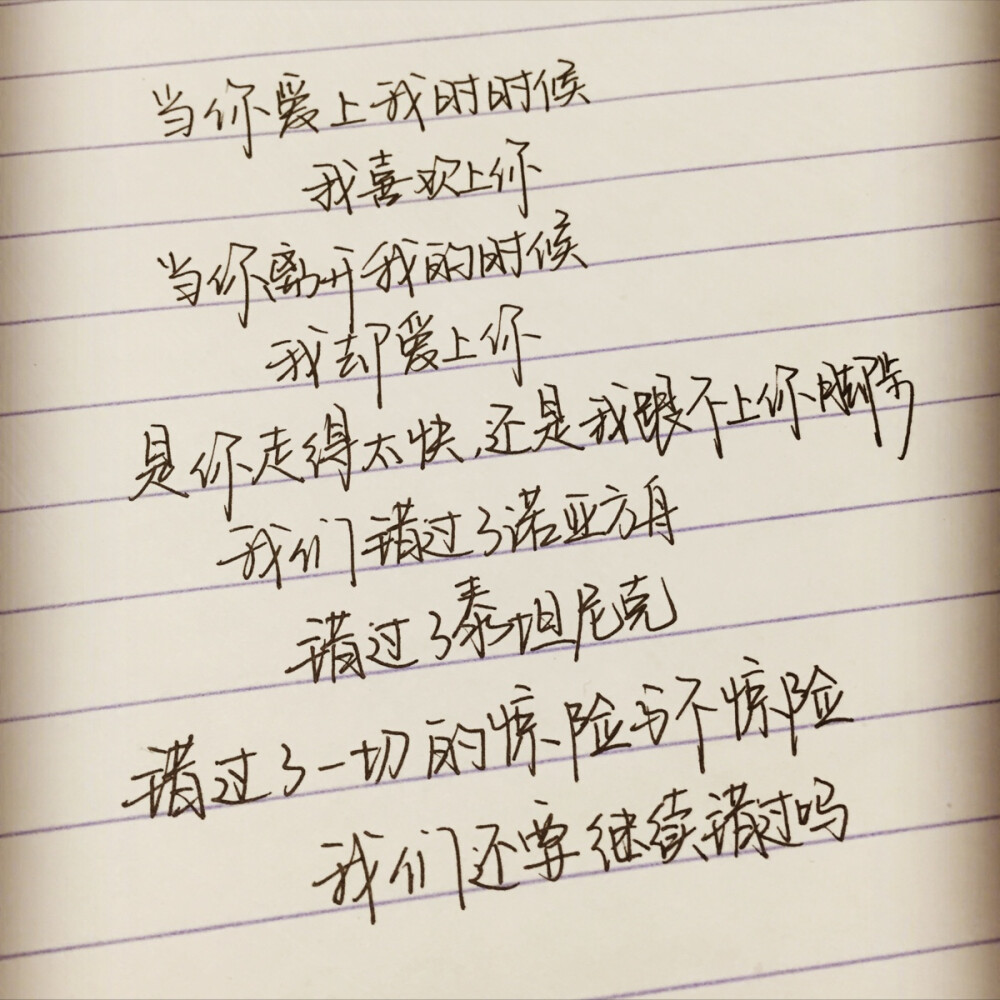 当你爱上我时时候
我喜欢上你
当你离开我的时候
我却爱上你
是你走得太快,还是我跟不上你脚步
我们错过了诺亚方舟
错过了泰坦尼克
错过了一切的惊险与不惊险
我们还要继续错过吗